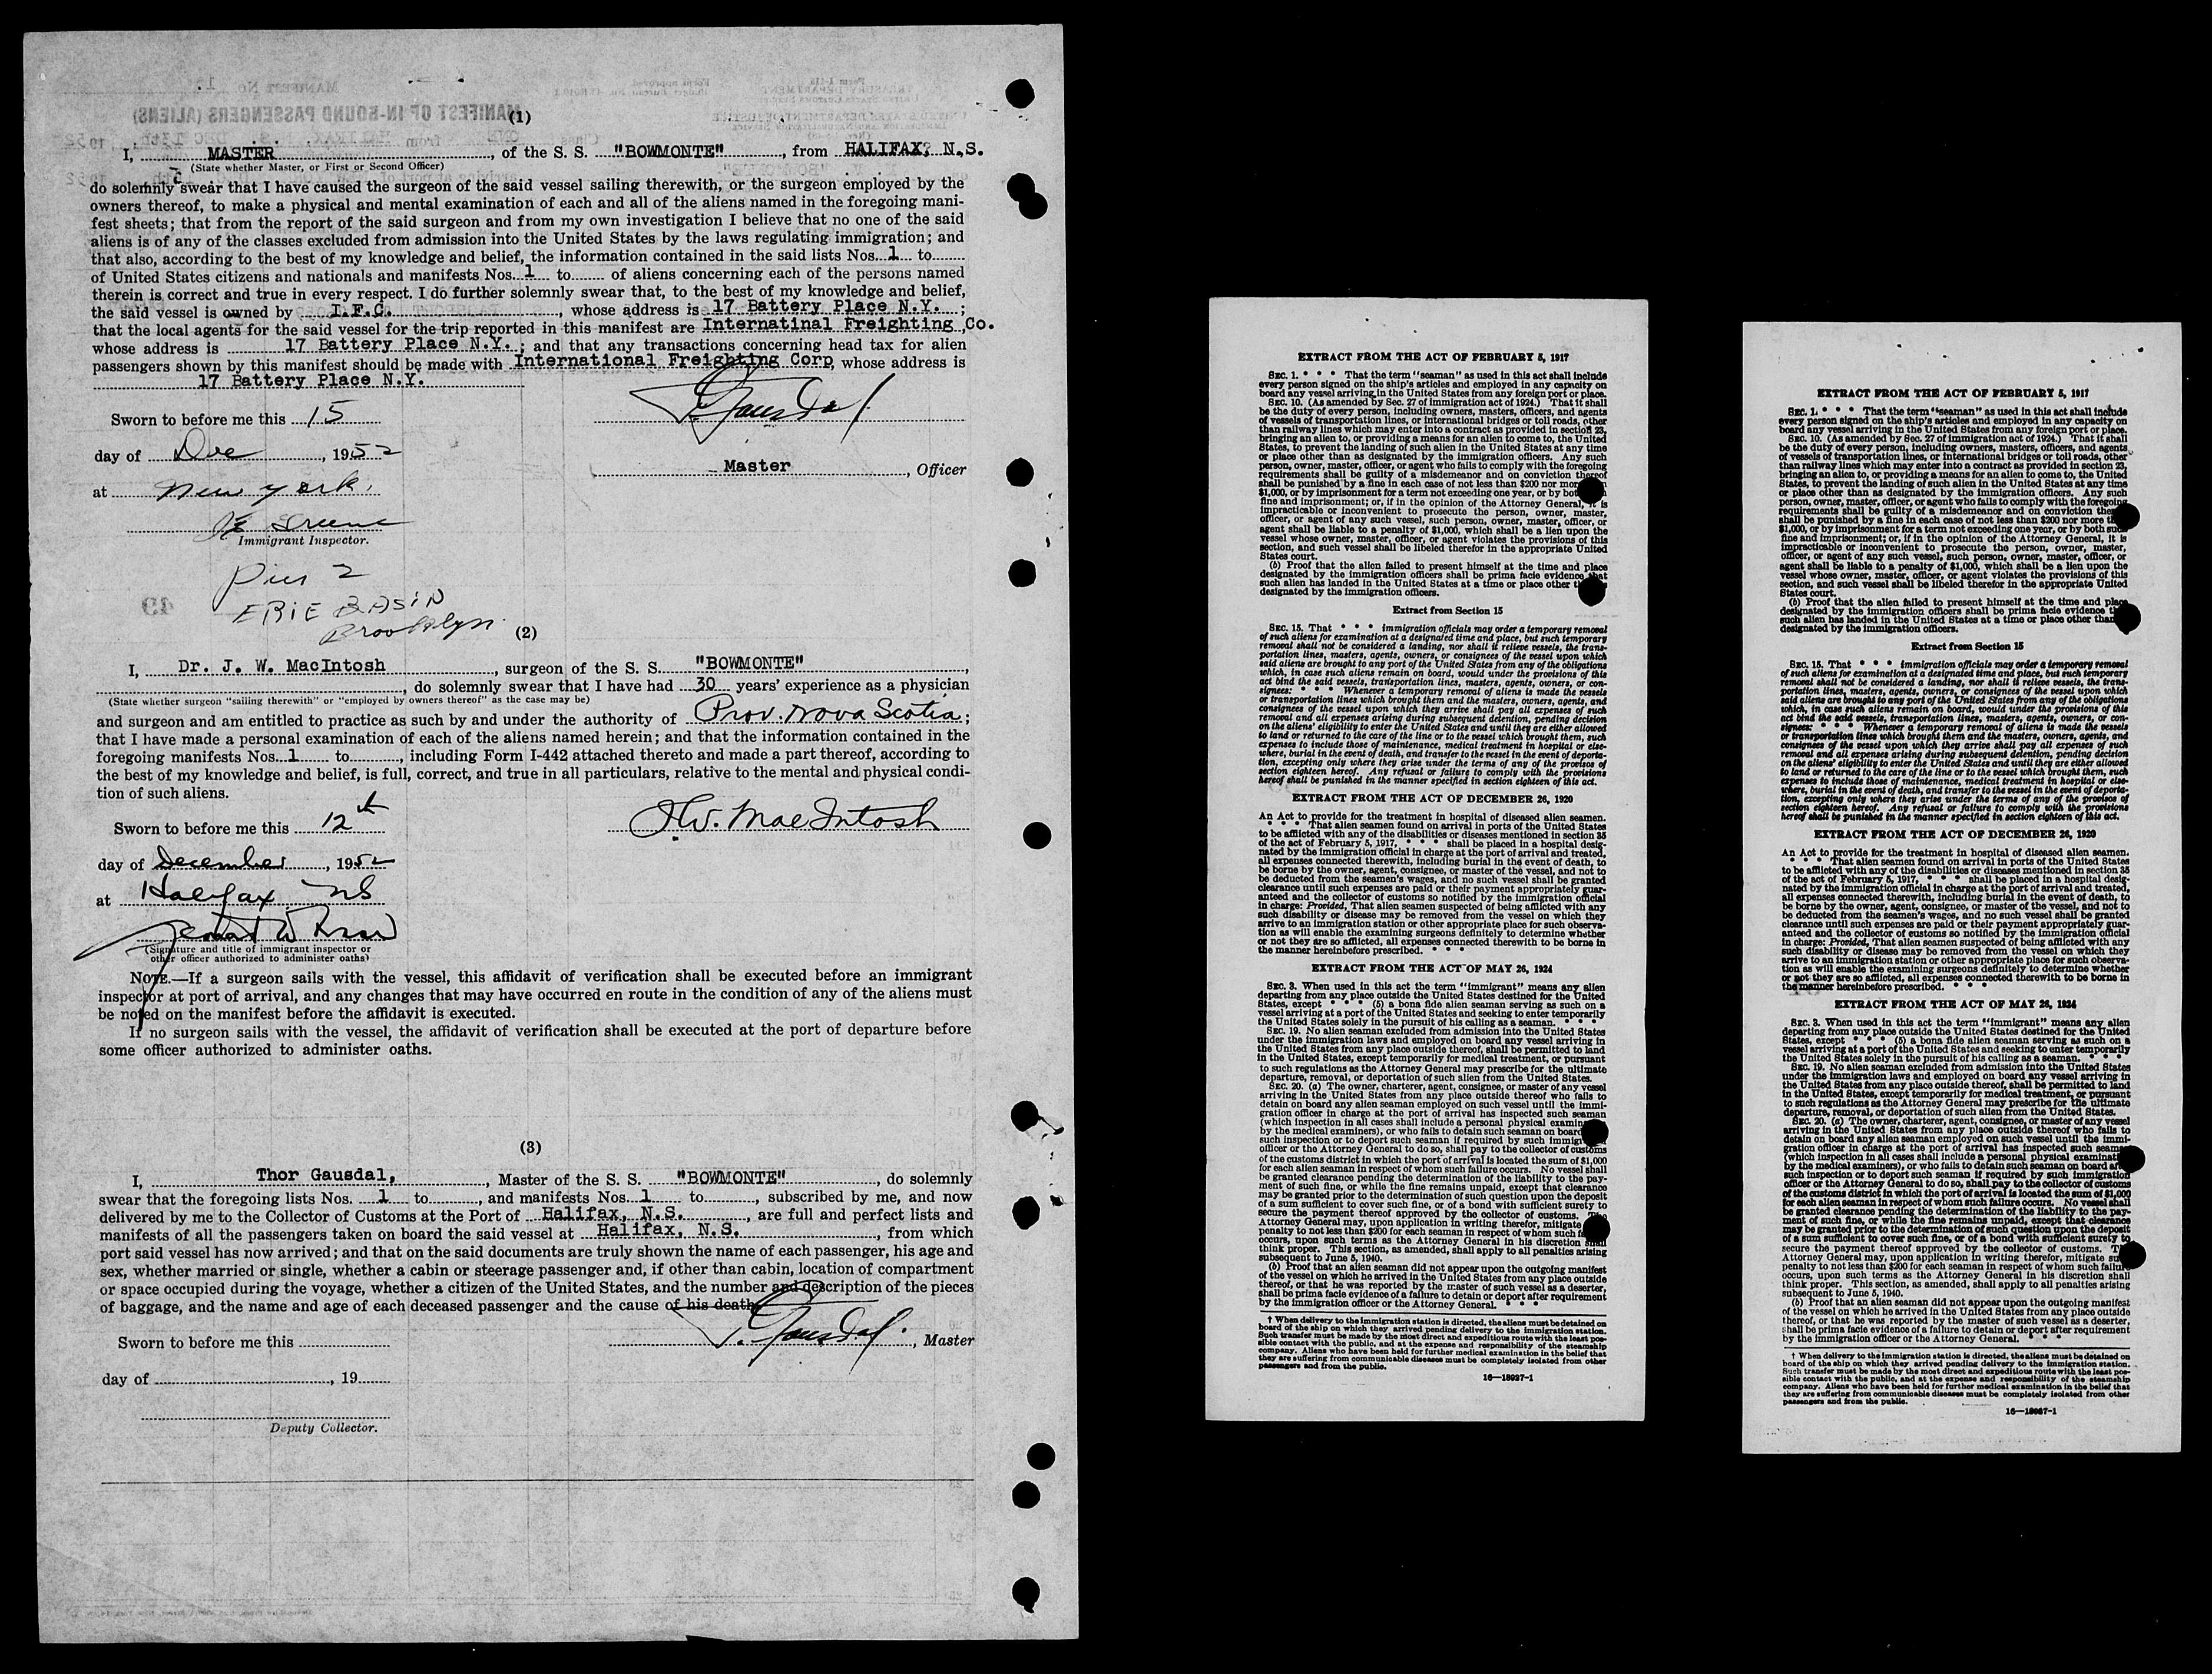 (1)
I, MASTER, of the S. S. "BOWMONTE", from HALIFAX, N.S.
(State whether Master, or First or Second Officer)
do solemnly swear that I have caused the surgeon of the said vessel sailing therewith, or the surgeon employed by the
owners thereof, to make a physical and mental examination of each and all of the aliens named in the foregoing mani-
fest sheets; that from the report of the said surgeon and from my own investigation I believe that no one of the said
aliens is of any of the classes excluded from admission into the United States by the laws regulating immigration; and
that also, according to the best of my knowledge and belief, the information contained in the said lists Nos. 1 to
of United States citizens and nationals and manifests Nos. 1 to of aliens concerning each of the persons named
therein is correct and true in every respect. I do further solemnly swear that, to the best of my knowledge and belief,
the said vessel is owned by I.F.C., whose address is 17 Battery Place N.Y.;
that the local agents for the said vessel for the trip reported in this manifest are Internatinal Freighting Co.
whose address is 17 Battery Place N.Y.; and that any transactions concerning head tax for alien
passengers shown by this manifest should be made with International Freighting Corp, whose address is
17 Battery Place N.Y.
T. Gausdal
Sworn to before me this 15
day of Dec, 1952
Master, Officer
at New York.
Greene
Immigrant Inspector.
Pier 2
ERIE BASIN
Brooklyn.
(2)
I, Dr. J. W. MacIntosh, surgeon of the S. S. "BOWMONTE",
, do solemnly swear that I have had 30 years' experience as a physician
(State whether surgeon "sailing therewith" or "employed by owners thereof" as the case may be)
and surgeon and am entitled to practice as such by and under the authority of Prov. Nova Scotia;
that I have made a personal examination of each of the aliens named herein; and that the information contained in the
foregoing manifests Nos. 1 to, including Form I-442 attached thereto and made a part thereof, according to
the best of my knowledge and belief, is full, correct, and true in all particulars, relative to the mental and physical condi-
tion of such aliens.
Sworn to before me this 12th
J.W. MacIntosh
day of December, 1952
at Halifax NS
(Signature and title of immigrant inspector or
other officer authorized to administer oaths)
NOTE.—If a surgeon sails with the vessel, this affidavit of verification shall be executed before an immigrant
inspector at port of arrival, and any changes that may have occurred en route in the condition of any of the aliens must
be noted on the manifest before the affidavit is executed.
If no surgeon sails with the vessel, the affidavit of verification shall be executed at the port of departure before
some officer authorized to administer oaths.
(3)
I, Thor Gausdal, Master of the S. S. "BOWMONTE", do solemnly
swear that the foregoing lists Nos. 1 to, and manifests Nos. 1 to, subscribed by me, and now
delivered by me to the Collector of Customs at the Port of Halifax, N.S., are full and perfect lists and
manifests of all the passengers taken on board the said vessel at Halifax, N.S., from which
port said vessel has now arrived; and that on the said documents are truly shown the name of each passenger, his age and
sex, whether married or single, whether a cabin or steerage passenger and, if other than cabin, location of compartment
or space occupied during the voyage, whether a citizen of the United States, and the number and description of the pieces
of baggage, and the name and age of each deceased passenger and the cause of his death.
Sworn to before me this
T. Gausdal, Master
day of, 19
Deputy Collector.
EXTRACT FROM THE ACT OF FEBRUARY 5, 1917
SEC. 1. * * * That the term "seaman" as used in this act shall include
every person signed on the ship's articles and employed in any capacity on
board any vessel arriving in the United States from any foreign port or place.
SEC. 10. (As amended by Sec. 27 of immigration act of 1924.) That it shall
be the duty of every person, including owners, masters, officers, and agents
of vessels of transportation lines, or international bridges or toll roads, other
than railway lines which may enter into a contract as provided in section 23,
bringing an alien to, or providing a means for an alien to come to, the United
States, to prevent the landing of such alien in the United States at any time
or place other than as designated by the immigration officers. Any such
person, owner, master, officer, or agent who fails to comply with the foregoing
requirements shall be guilty of a misdemeanor and on conviction thereof
shall be punished by a fine in each case of not less than $200 nor more
$1,000, or by imprisonment for a term not exceeding one year, or by both
fine and imprisonment; or, if in the opinion of the Attorney General, it is
impracticable or inconvenient to prosecute the person, owner, master,
officer, or agent of any such vessel, such person, owner, master, officer, or
agent shall be liable to a penalty of $1,000, which shall be a lien upon the
vessel whose owner, master, officer, or agent violates the provisions of this
section, and such vessel shall be libeled therefor in the appropriate United
States court.
(b) Proof that the alien failed to present himself at the time and place
designated by the immigration officers shall be prima facie evidence that
such alien has landed in the United States at a time or place other
designated by the immigration officers.
Extract from Section 15
SEC. 15. That * * * immigration officials may order a temporary removal
of such aliens for examination at a designated time and place, but such temporary
removal shall not be considered a landing, nor shall it relieve vessels, the trans-
portation lines, masters, agents, owners, or consignees of the vessel upon which
said aliens are brought to any port of the United States from any of the obligations
which, in case such aliens remain on board, would under the provisions of this
act bind the said vessels, transportation lines, masters, agents, owners, or con-
signees: * * * Whenever a temporary removal of aliens is made the vessels
or transportation lines which brought them and the masters, owners, agents, and
consignees of the vessel upon which they arrive shall pay all expenses of such
removal and all expenses arising during subsequent detention, pending decision
on the aliens' eligibility to enter the United States and until they are either allowed
to land or returned to the care of the line or to the vessel which brought them, such
expenses to include those of maintenance, medical treatment in hospital or else-
where, burial in the event of death, and transfer to the vessel in the event of deporta-
tion, excepting only where they arise under the terms of any of the provisos of
section eighteen hereof. Any refusal or failure to comply with the provisions
hereof shall be punished in the manner specified in section eighteen of this act.
EXTRACT FROM THE ACT OF DECEMBER 26, 1920
An Act to provide for the treatment in hospital of diseased alien seamen.
* * * That alien seamen found on arrival in ports of the United States
to be afflicted with any of the disabilities or diseases mentioned in section 35
of the act of February 5, 1917, * * * shall be placed in a hospital desig-
nated by the immigration official in charge at the port of arrival and treated,
all expenses connected therewith, including burial in the event of death, to
be borne by the owner, agent, consignee, or master of the vessel, and not to
be deducted from the seamen's wages, and no such vessel shall be granted
clearance until such expenses are paid or their payment appropriately guar-
anteed and the collector of customs so notified by the immigration official
in charge: Provided, That alien seamen suspected of being afflicted with any
such disability or disease may be removed from the vessel on which they
arrive to an immigration station or other appropriate place for such observa-
tion as will enable the examining surgeons definitely to determine whether
or not they are so afflicted, all expenses connected therewith to be borne in
the manner hereinbefore prescribed. * * *
EXTRACT FROM THE ACT OF MAY 26, 1924
SEC. 3. When used in this act the term "immigrant" means any alien
departing from any place outside the United States destined for the United
States, except * * * (5) a bona fide alien seaman serving as such on a
vessel arriving at a port of the United States and seeking to enter temporarily
the United States solely in the pursuit of his calling as a seaman. * * *
SEC. 19. No alien seaman excluded from admission into the United States
under the immigration laws and employed on board any vessel arriving in
the United States from any place outside thereof, shall be permitted to land
in the United States, except temporarily for medical treatment, or pursuant
to such regulations as the Attorney General may prescribe for the ultimate
departure, removal, or deportation of such alien from the United States.
SEC. 20. (a) The owner, charterer, agent, consignee, or master of any vessel
arriving in the United States from any place outside thereof who fails to
detain on board any alien seaman employed on such vessel until the immi-
gration officer in charge at the port of arrival has inspected such seaman
(which inspection in all cases shall include a personal physical
by the medical examiners), or who fails to detain such seaman on board
such inspection or to deport such seaman if required by such
officer or the Attorney General to do so, shall pay to the collector of customs
of the customs district in which the port of arrival is located the sum of $1,000
for each alien seaman in respect of whom such failure occurs. No vessel shall
be granted clearance pending the determination of the liability to the pay-
ment of such fine, or while the fine remains unpaid, except that clearance
may be granted prior to the determination of such question upon the deposit
of a sum sufficient to cover such fine, or of a bond with sufficient surety to
secure the payment thereof approved by the collector of customs. The
Attorney General may, upon application in writing therefor, mitigate
penalty to not less than $200 for each seaman in respect of whom such
occurs, upon such terms as the Attorney General in his discretion shall
think proper. This section, as amended, shall apply to all penalties arising
subsequent to June 5, 1940.
(b) Proof that an alien seaman did not appear upon the outgoing manifest
of the vessel on which he arrived in the United States from any place outside
thereof, or that he was reported by the master of such vessel as a deserter,
shall be prima facie evidence of a failure to detain or deport after requirement
by the immigration officer or the Attorney General. * * *
† When delivery to the immigration station is directed, the aliens must be detained on
board of the ship on which they arrived pending delivery to the immigration station.
Such transfer must be made by the most direct and expeditious route with the least pos-
sible contact with the public, and at the expense and responsibility of the steamship
company. Aliens who have been held for further medical examination in the belief that
they are suffering from communicable diseases must be completely isolated from other
passengers and from the public.
16—18927-1
EXTRACT FROM THE ACT OF FEBRUARY 5, 1917
SEC. 1. * * * That the term "seaman" as used in this act shall include
every person signed on the ship's articles and employed in any capacity on
board any vessel arriving in the United States from any foreign port or place.
SEC. 10. (As amended by Sec. 27 of immigration act of 1924.) That it shall
be the duty of every person, including owners, masters, officers, and agents
of vessels of transportation lines, or international bridges or toll roads, other
than railway lines which may enter into a contract as provided in section 23,
bringing an alien to, or providing a means for an alien to come to, the United
States, to prevent the landing of such alien in the United States at any time
or place other than as designated by the immigration officers. Any such
person, owner, master, officer, or agent who fails to comply with the foregoing
requirements shall be guilty of a misdemeanor and on conviction
shall be punished by a fine in each case of not less than $200 nor more
$1,000, or by imprisonment for a term not exceeding one year, or by both such
fine and imprisonment; or, if in the opinion of the Attorney General, it is
impracticable or inconvenient to prosecute the person, owner, master,
officer, or agent of any such vessel, such person, owner, master, officer, or
agent shall be liable to a penalty of $1,000, which shall be a lien upon the
vessel whose owner, master, officer, or agent violates the provisions of this
section, and such vessel shall be libeled therefor in the appropriate United
States court.
(b) Proof that the alien failed to present himself at the time and place
designated by the immigration officers shall be prima facie evidence
such alien has landed in the United States at a time or place other than
designated by the immigration officers.
Extract from Section 15
SEC. 15. That * * * immigration officials may order a temporary removal
of such aliens for examination at a designated time and place, but such temporary
removal shall not be considered a landing, nor shall it relieve vessels, the trans-
portation lines, masters, agents, owners, or consignees of the vessel upon which
said aliens are brought to any port of the United States from any of the obligations
which, in case such aliens remain on board, would under the provisions of this
act bind the said vessels, transportation lines, masters, agents, owners, or con-
signees: * * * Whenever a temporary removal of aliens is made the vessels
or transportation lines which brought them and the masters, owners, agents, and
consignees of the vessel upon which they arrive shall pay all expenses of such
removal and all expenses arising during subsequent detention, pending decision
on the aliens' eligibility to enter the United States and until they are either allowed
to land or returned to the care of the line or to the vessel which brought them, such
expenses to include those of maintenance, medical treatment in hospital or else-
where, burial in the event of death, and transfer to the vessel in the event of deporta-
tion, excepting only where they arise under the terms of any of the provisos of
section eighteen hereof. Any refusal or failure to comply with the provisions
hereof shall be punished in the manner specified in section eighteen of this act.
EXTRACT FROM THE ACT OF DECEMBER 26, 1920
An Act to provide for the treatment in hospital of diseased alien seamen.
* * * That alien seamen found on arrival in ports of the United States
to be afflicted with any of the disabilities or diseases mentioned in section 35
of the act of February 5, 1917, * * * shall be placed in a hospital desig-
nated by the immigration official in charge at the port of arrival and treated,
all expenses connected therewith, including burial in the event of death, to
be borne by the owner, agent, consignee, or master of the vessel, and not to
be deducted from the seamen's wages, and no such vessel shall be granted
clearance until such expenses are paid or their payment appropriately guar-
anteed and the collector of customs so notified by the immigration official
in charge: Provided, That alien seamen suspected of being afflicted with any
such disability or disease may be removed from the vessel on which they
arrive to an immigration station or other appropriate place for such observa-
tion as will enable the examining surgeons definitely to determine whether
or not they are so afflicted, all expenses connected therewith to be borne in
the manner hereinbefore prescribed. * * *
EXTRACT FROM THE ACT OF MAY 26, 1924
SEC. 3. When used in this act the term "immigrant" means any alien
departing from any place outside the United States destined for the United
States, except * * * (5) a bona fide alien seaman serving as such on a
vessel arriving at a port of the United States and seeking to enter temporarily
the United States solely in the pursuit of his calling as a seaman. * * *
SEC. 19. No alien seaman excluded from admission into the United States
under the immigration laws and employed on board any vessel arriving in
the United States from any place outside thereof, shall be permitted to land
in the United States, except temporarily for medical treatment, or pursuant
to such regulations as the Attorney General may prescribe for the ultimate
departure, removal, or deportation of such alien from the United States.
SEC. 20. (a) The owner, charterer, agent, consignee, or master of any vessel
arriving in the United States from any place outside thereof who fails to
detain on board any alien seaman employed on such vessel until the immi-
gration officer in charge at the port of arrival has inspected such seaman
(which inspection in all cases shall include a personal physical
by the medical examiners), or who fails to detain such seaman on board
such inspection or to deport such seaman if required by such immigration
officer or the Attorney General to do so, shall pay to the collector of customs
of the customs district in which the port of arrival is located the sum of $1,000
for each alien seaman in respect of whom such failure occurs. No vessel shall
be granted clearance pending the determination of the liability to the pay-
ment of such fine, or while the fine remains unpaid, except that clearance
may be granted prior to the determination of such question upon the deposit
of a sum sufficient to cover such fine, or of a bond with sufficient surety to
secure the payment thereof approved by the collector of customs.
Attorney General may, upon application in writing therefor, mitigate
penalty to not less than $200 for each seaman in respect of whom such failure
occurs, upon such terms as the Attorney General in his discretion shall
think proper. This section, as amended, shall apply to all penalties arising
subsequent to June 5, 1940.
(b) Proof that an alien seaman did not appear upon the outgoing manifest
of the vessel on which he arrived in the United States from any place outside
thereof, or that he was reported by the master of such vessel as a deserter,
shall be prima facie evidence of a failure to detain or deport after requirement
by the immigration officer or the Attorney General. * * *
† When delivery to the immigration station is directed, the aliens must be detained on
board of the ship on which they arrived pending delivery to the immigration station.
Such transfer must be made by the most direct and expeditious route with the least pos-
sible contact with the public, and at the expense and responsibility of the steamship
company. Aliens who have been held for further medical examination in the belief that
they are suffering from communicable diseases must be completely isolated from other
passengers and from the public.
16—18927-1